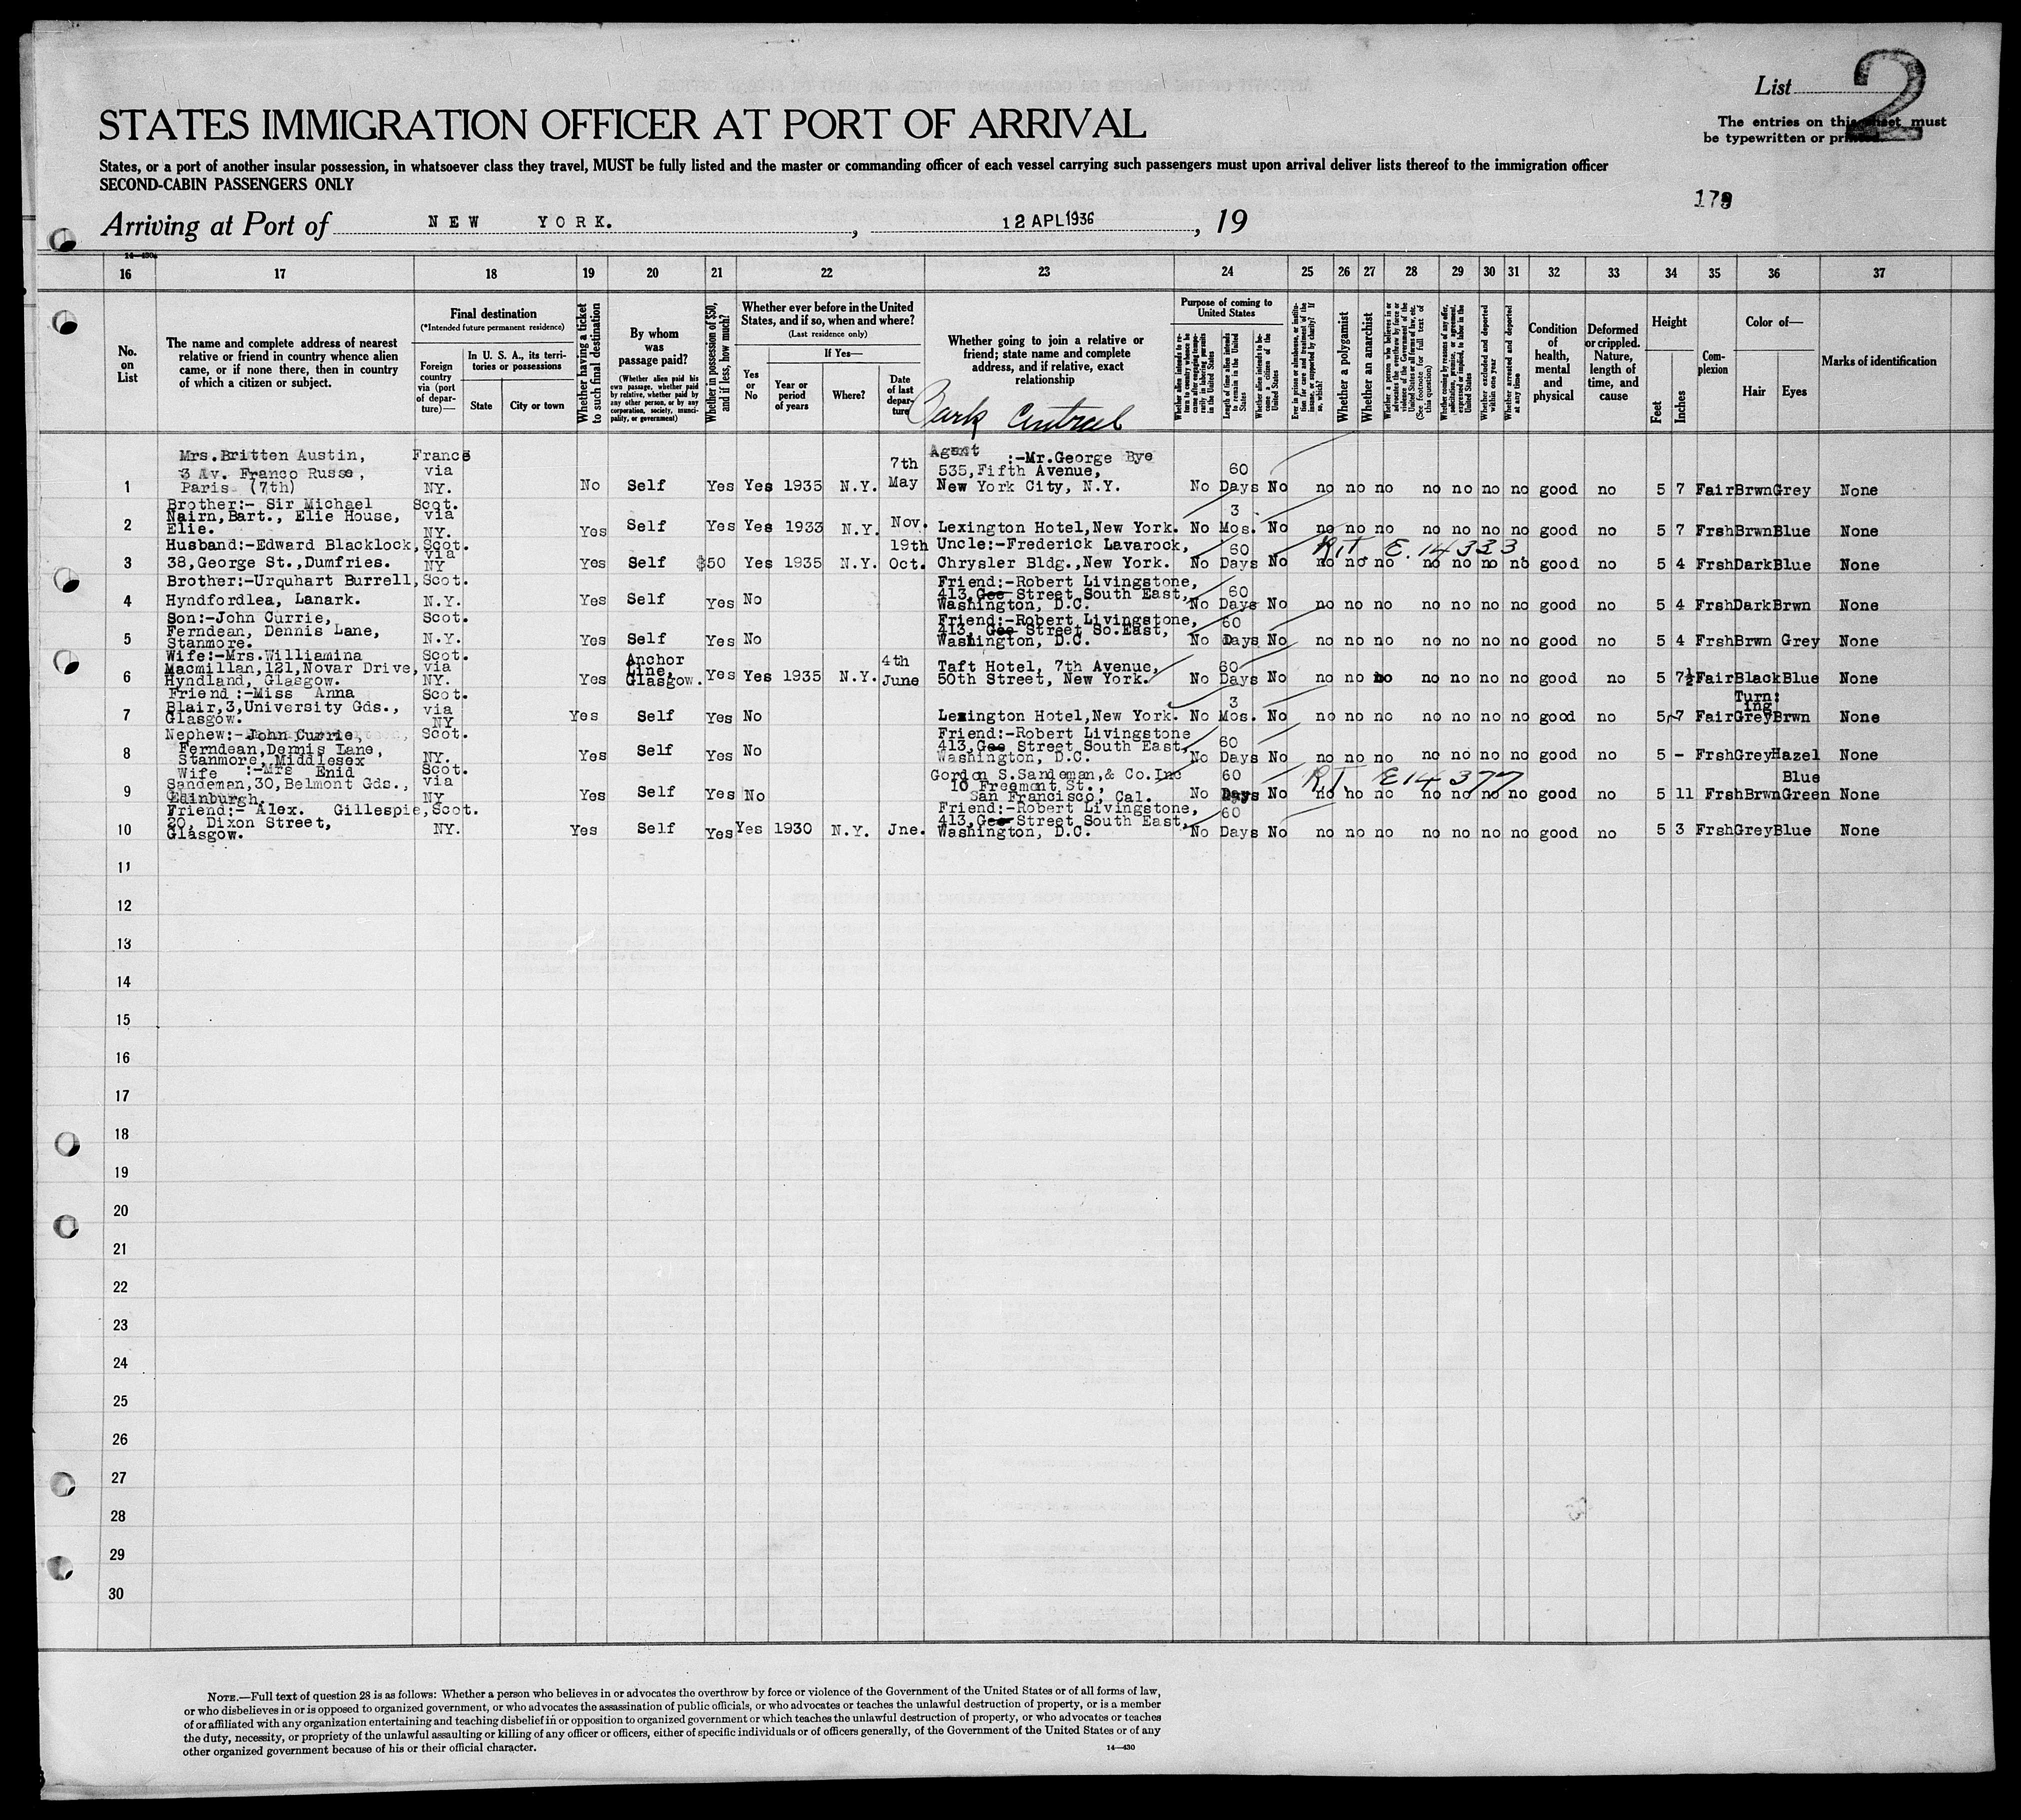 List 2
STATES IMMIGRATION OFFICER AT PORT OF ARRIVAL
The entries on this sheet must
be typewritten or printed.
States, or a port of another insular possession, in whatsoever class they travel, MUST be fully listed and the master or commanding officer of each vessel carrying such passengers must upon arrival deliver lists thereof to the immigration officer
SECOND-CABIN PASSENGERS ONLY
179
Arriving at Port of NEW YORK. , 12 APL 1936 , 19
14—430a
16 17 18 19 20 21 22 23 24 25 26 27 28 29 30 31 32 33 34 35 36 37
No. on List
The name and complete address of nearest relative or friend in country whence alien came, or if none there, then in country of which a citizen or subject.
Final destination
(*Intended future permanent residence)
Foreign country via (port of departure)—
In U. S. A., its territories or possessions
State
City or town
Whether having a ticket to such final destination
By whom was passage paid?
(Whether alien paid his own passage, whether paid by relative, whether paid by any other person, or by any corporation, society, municipality, or government)
Whether in possession of $50, and if less, how much?
Whether ever before in the United States, and if so, when and where?
(Last residence only)
Yes or No
If Yes—
Year or period of years
Where?
Date of last departure
Whether going to join a relative or friend; state name and complete address, and if relative, exact relationship
Park Central
Purpose of coming to United States
Whether alien intends to return to country whence he came after engaging temporarily in laboring pursuits in the United States
Length of time alien intends to remain in the United States
Whether alien intends to become a citizen of the United States
Ever in prison or almshouse, or institution for care and treatment of the insane, or supported by charity? If so, which?
Whether a polygamist
Whether an anarchist
Whether a person who believes in or advocates the overthrow by force or violence of the Government of the United States or all forms of law, etc. (See footnote for full text of this question)
Whether coming by reasons of any offer, solicitation, promise, or agreement, expressed or implied, to labor in the United States
Whether excluded and deported within one year
Whether arrested and deported at any time
Condition of health, mental and physical
Deformed or crippled. Nature, length of time, and cause
Height
Feet
Inches
Complexion
Color of—
Hair
Eyes
Marks of identification
1 Mrs.Britten Austin, 3 Av. Franco Russe, Paris (7th) France via NY. No Self Yes Yes 1935 N.Y. 7th May Agent :-Mr.George Bye 535,Fifth Avenue, New York City, N.Y. No 60 Days No no no no no no no no good no 5 7 Fair Brwn Grey None
2 Brother:- Sir Michael Nairn,Bart., Elie House, Elie. Scot. via NY. Yes Self Yes Yes 1933 N.Y. Nov. Lexington Hotel,New York. No 3 Mos. No no no no no no no no good no 5 7 Frsh Brwn Blue None
3 Husband:-Edward Blacklock, 38,George St.,Dumfries. Scot. via NY Yes Self $50 Yes 1935 N.Y. 19th Oct. Uncle:-Frederick Lavarock, Chrysler Bldg.,New York. No 60 Days No R.T. E.14333. no no no no no no no good no 5 4 Frsh Dark Blue None
4 Brother:-Urquhart Burrell, Hyndfordlea, Lanark. Scot. N.Y. Yes Self Yes No Friend:-Robert Livingstone, 413,Gee Street South East, Washington, D.C. No 60 Days No no no no no no no no good no 5 4 Frsh Dark Brwn None
5 Son:-John Currie, Ferndean, Dennis Lane, Stanmore. Scot. N.Y. Yes Self Yes No Friend:-Robert Livingstone, 413, Gee Street So.East, Washington, D.C. No 60 Days No no no no no no no no good no 5 4 Frsh Brwn Grey None
6 Wife:-Mrs.Williamina Macmillan,121,Novar Drive, Hyndland, Glasgow. Scot. via NY. Yes Anchor Line, Glasgow. Yes Yes 1935 N.Y. 4th June Taft Hotel, 7th Avenue, 50th Street, New York. No 60 Days No no no no no no no no good no 5 7½ Fair Black Blue None
7 Friend:-Miss Anna Blair,3,University Gds., Glasgow. Scot. via NY Yes Self Yes No Lexington Hotel,New York. No 3 Mos. No no no no no no no no good no 5 7 Fair Turning Grey Brwn None
8 Nephew:-John Currie, Ferndean,Dennis Lane, Stanmore, Middlesex Scot. NY. Yes Self Yes No Friend:-Robert Livingstone 413,Gee Street South East, Washington, D.C. No 60 Days No no no no no no no no good no 5 - Frsh Grey Hazel None
9 Wife :-Mrs Enid Sandeman,30,Belmont Gds., Edinburgh. Scot. via NY Yes Self Yes No Gordon S.Sandeman,& Co.Inc 10 Freemont St., San Francisco, Cal. No 60 Days No R.T. E14377 no no no no no no no good no 5 11 Frsh Brwn Blue Green None
10 Friend:- Alex. Gillespie, 20, Dixon Street, Glasgow. Scot. NY. Yes Self Yes Yes 1930 N.Y. Jne. Friend:-Robert Livingstone, 413,Gee Street South East, Washington, D.C. No 60 Days No no no no no no no no good no 5 3 Frsh Grey Blue None
11
12
13
14
15
16
17
18
19
20
21
22
23
24
25
26
27
28
29
30
NOTE.—Full text of question 28 is as follows: Whether a person who believes in or advocates the overthrow by force or violence of the Government of the United States or of all forms of law,
or who disbelieves in or is opposed to organized government, or who advocates the assassination of public officials, or who advocates or teaches the unlawful destruction of property, or is a member
of or affiliated with any organization entertaining and teaching disbelief in or opposition to organized government or which teaches the unlawful destruction of property, or who advocates or teaches
the duty, necessity, or propriety of the unlawful assaulting or killing of any officer or officers, either of specific individuals or of officers generally, of the Government of the United States or of any
other organized government because of his or their official character.
14—430